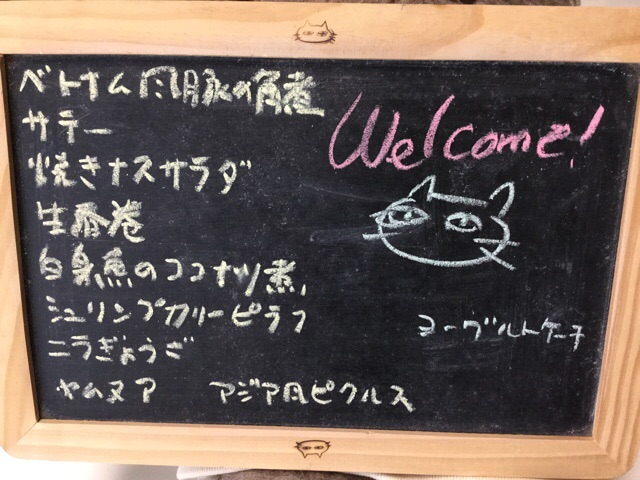 ベトナム風豚の角煮
サテー
焼きナスサラダ
生春巻
白身魚のココナツ煮
シュリンプカリーピラフ
ニラぎょうざ
ヤムヌア
アジア風ピクルス
Welcome!
ヨーグルトケーキ